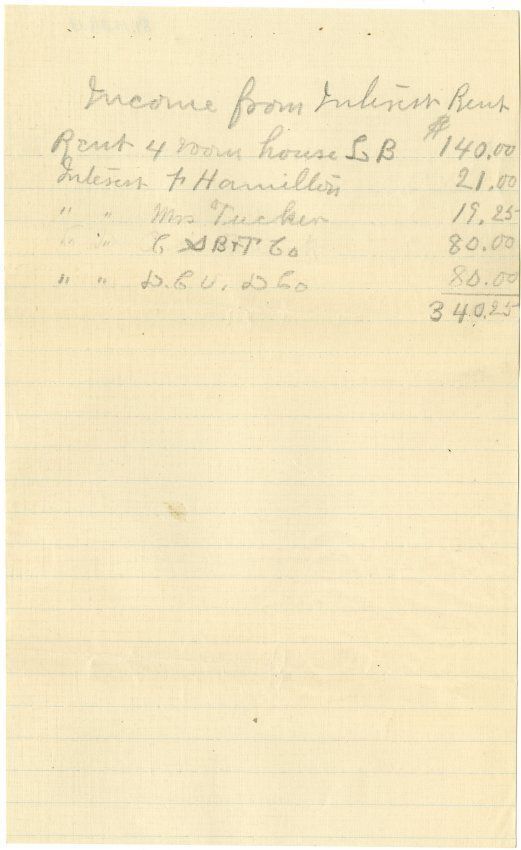 Income from Interest Rent
Rent 4 room house L B $140.00
Interest F Hamilton 21.00
" " Mrs Tucker 19.25
" " C S B & T Co 80.00
" " D. C U. D Co 80.00
340.25